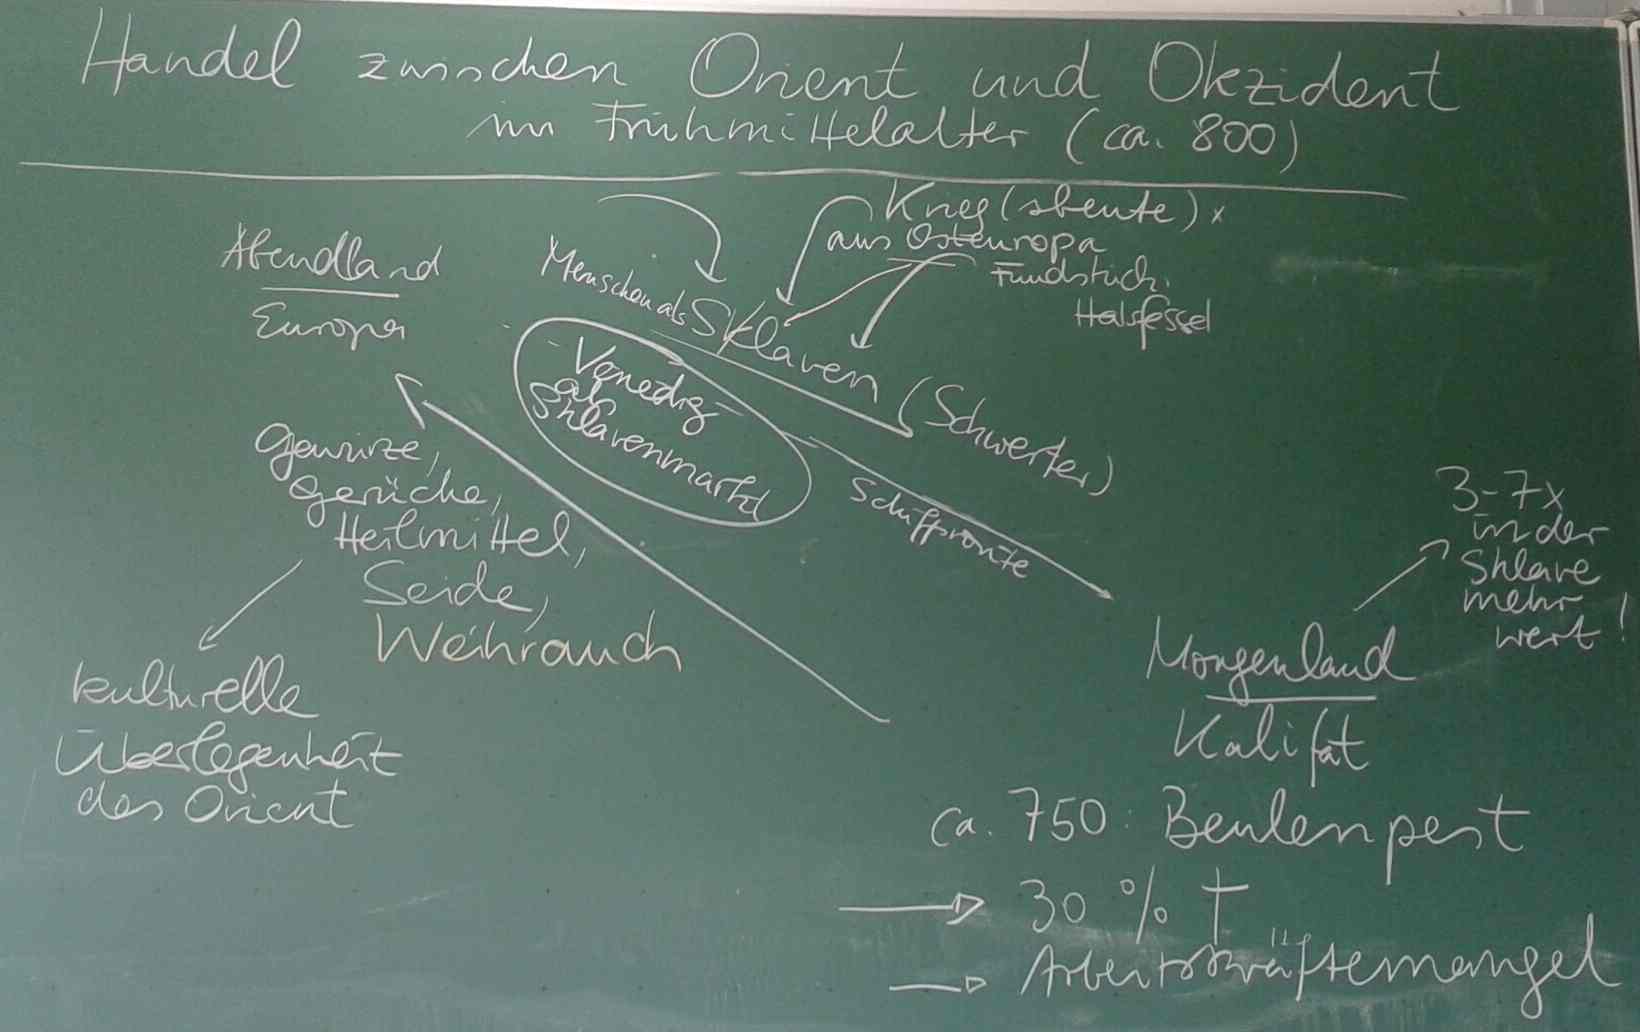 Handel zwischen Orient und Okzident
im Frühmittelalter (ca. 800)
Krieg(sbeute) x
aus Osteuropa
Fundstück:
Halsfessel
Abendland
Europa
Menschen als Sklaven (Schwerter)
Venedig
als
Sklavenmarkt
Schiffsroute
Gewürze,
Gerüche,
Heilmittel,
Seide,
Weihrauch
kulturelle
Überlegenheit
des Orient
3-7x
in der
Sklave
mehr
wert!
Morgenland
Kalifat
ca. 750: Beulenpest
30 % †
Arbeitskräftemangel